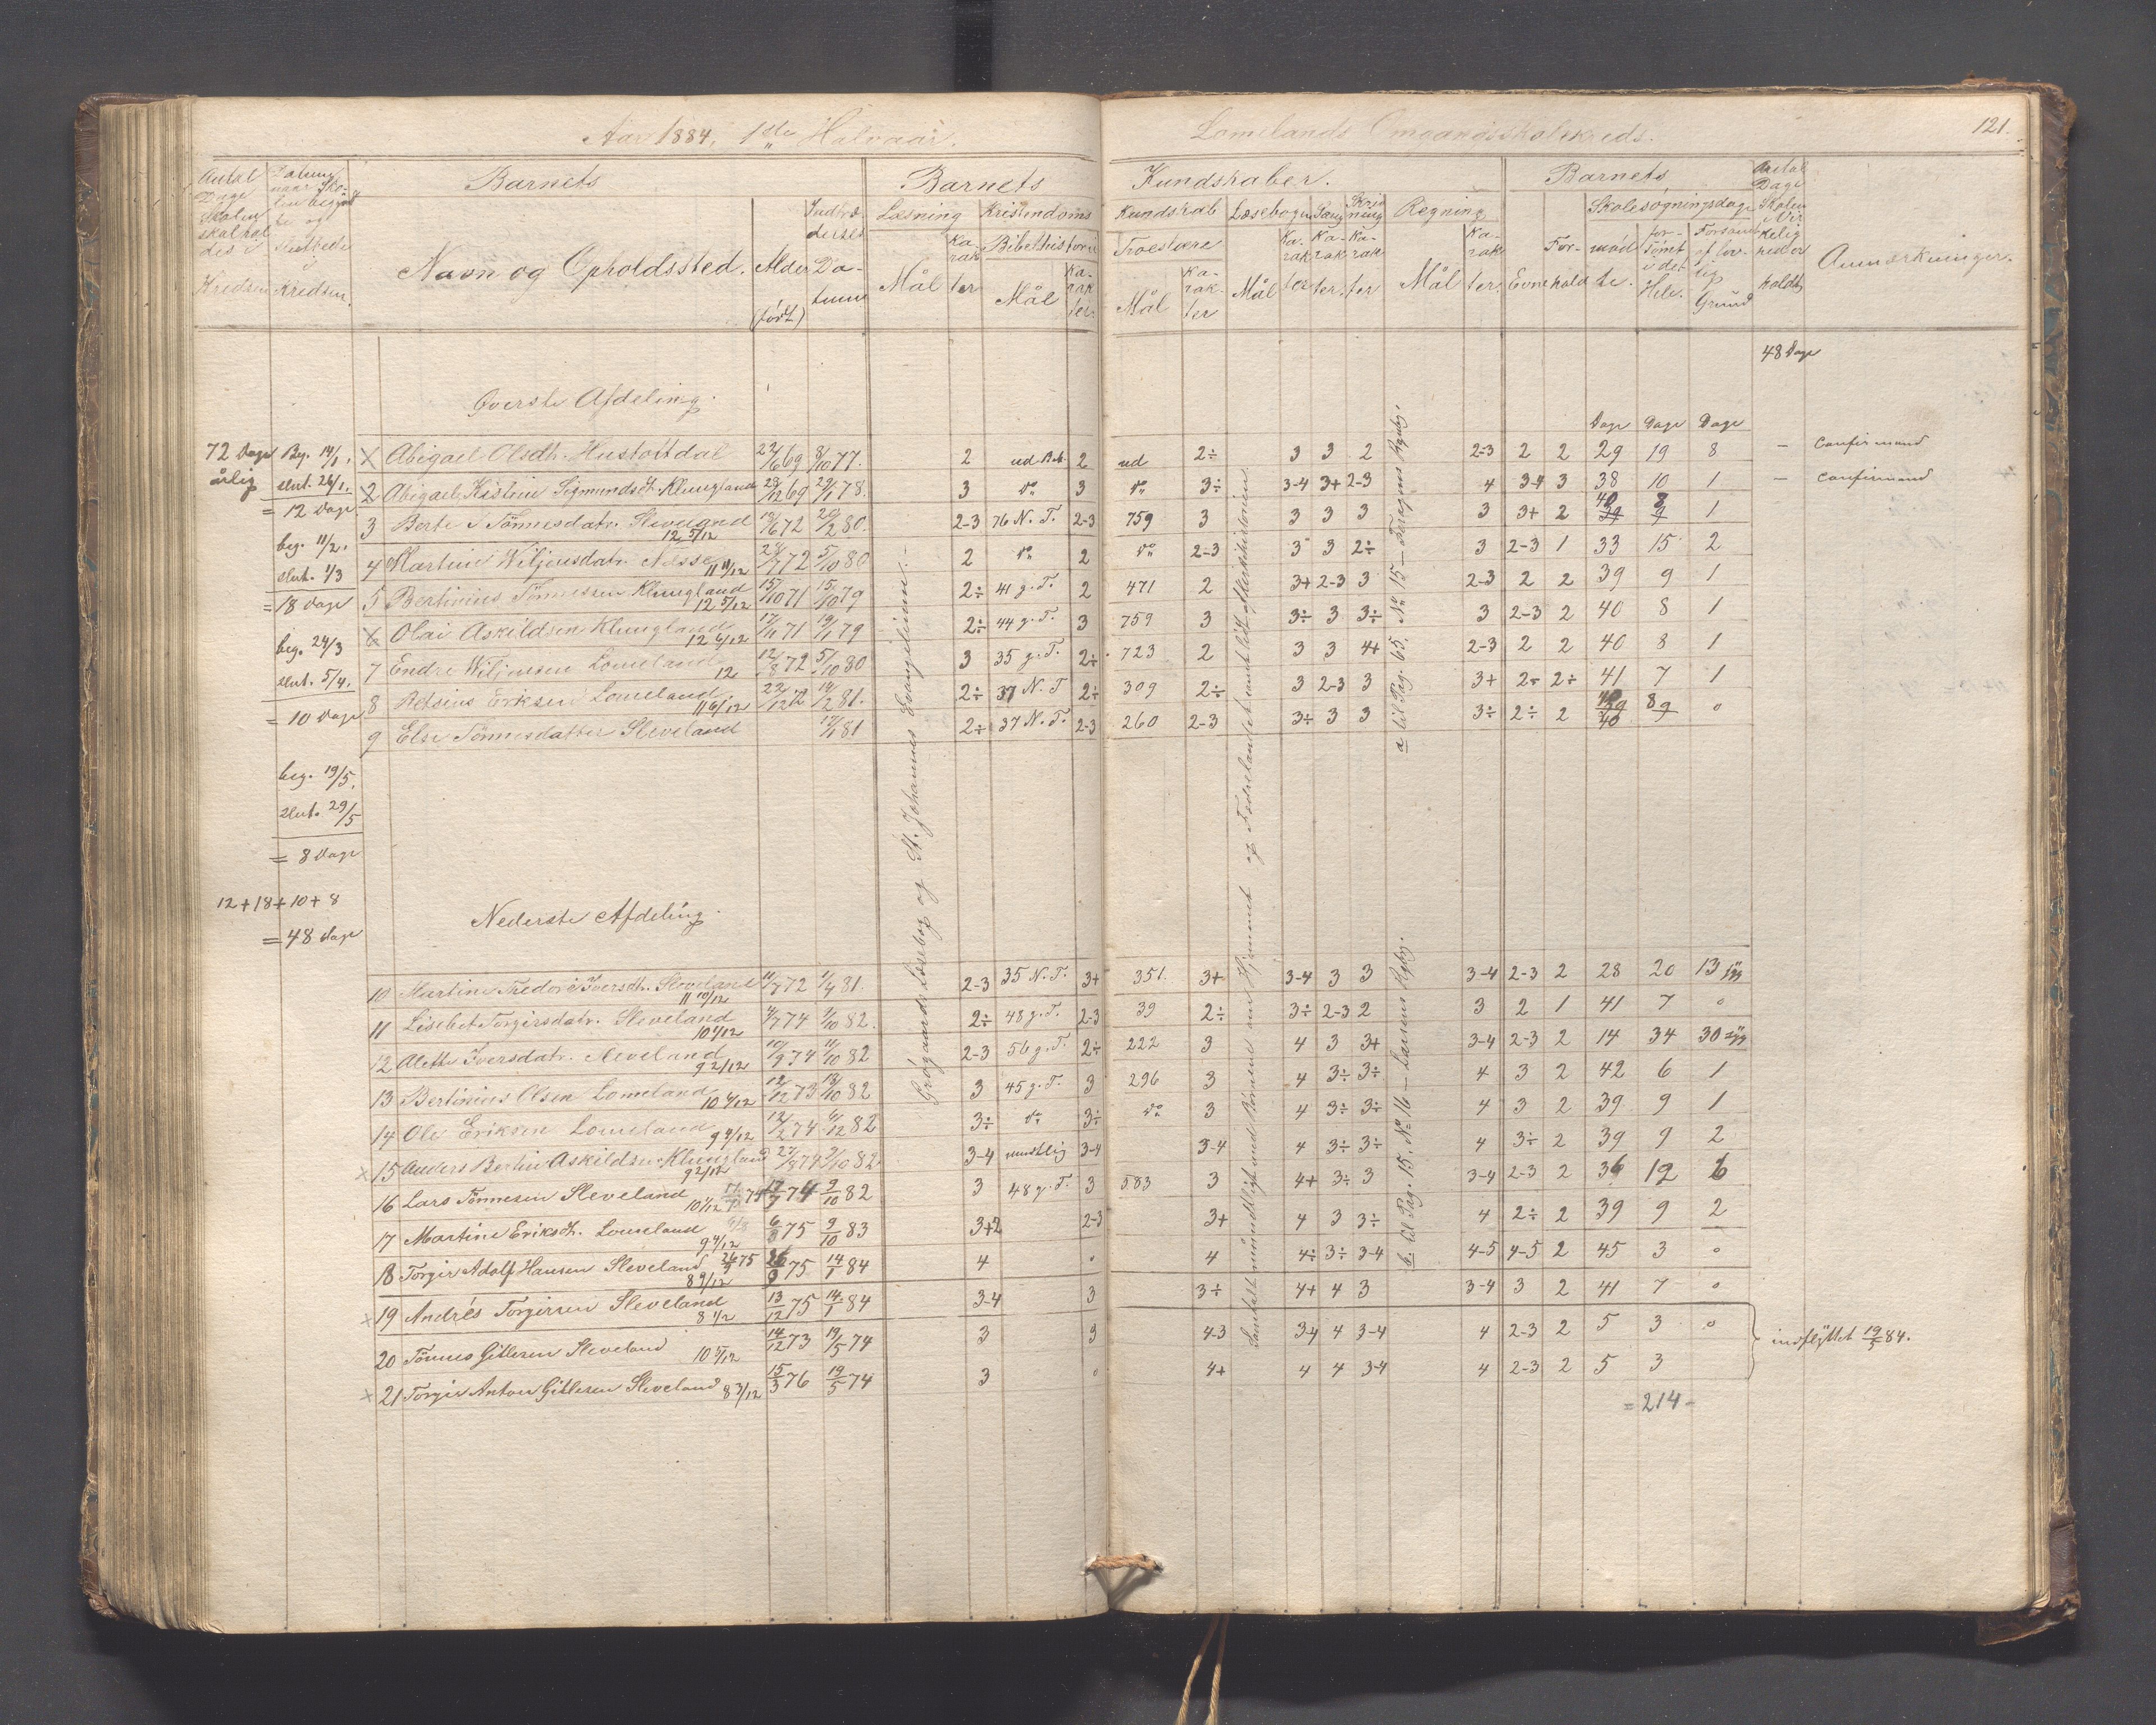 Aar 1884, 1ste Halvaar. Lomelands Omgangsskolekreds. 121.
Antal Dage Skolen skal holdes i Kredsen
Datum naar Skolen begyndte og sluttede i Kredsen.
Barnets
Navn og Opholdssted. Alder (født) Indtrædelses Datum
Barnets Kundskaber.
Læsning Mål Karakter
Kristendoms
Bibelhistorie Mål Karakter
Kundskab
Troeslære Mål Karakter
Læsebogen Mål Karakter
Sang Karakter
Skrivning Karakter
Regning Mål Karakter
Barnets
Evne Forhold
Skolesøgningsdage
mødte. forsømt i det Hele. Forsømt af lovlig Grund
Antal Dage Skolen virkelig er holdt
Anmærkninger.
48 Dage
Øverste Afdeling.
Dage Dage Dage
72 Dage årlig
Beg. 14/1. slut. 26/1. = 12 Dage
beg. 11/2. slut. 1/3 = 18 Dage
beg. 24/3 slut. 5/4. = 10 Dage
beg. 19/5. slut. 29/5 = 8 Dage
12+18+10+8
= 48 Dage
X Abigael Olsdtr. Hustoftdal 22/6 69 8/10 77. 2 ud Bib. 2 ud 2÷ 3 3 2 2-3 2 2 29 19 8 - Confirmand
2 Abigael Kistine Sigmundsdt. Klungland 28/12 69 29/1 78. 3 do 3 do 3÷ 3-4 3+ 2-3 4 3-4 3 38 10 1 - Confirmand
3 Berte Tönnesdatr. Sleveland 12 5/12 72 2 80. 2-3 76 N. T. 2-3 759 3 3 3 3 3 3+ 2 40 39 8 9 1
4 Martine Wiljensdatr. 11 11/12 72 5/10 80 2 do 2 do 2-3 3 3 2÷ 3 2-3 1 33 15 2
5 Bertinius Tönnessen Klungland 12 5/12 15/10 71 15/10 79 2÷ 41 g. T. 2 471 2 3+ 2-3 3 2-3 2 2 39 9 1
6 Olai Askildsen Klungland 12 6/12 71 79 2÷ 44 g. T. 3 759 3 3÷ 3 3÷ 3 2-3 2 40 8 1
7 Endre Wiljensen Lomeland 12 12/8 72 5/10 80 3 35 g. T. 2÷ 723 2 3 3 4+ 2-3 2 2 40 8 1
8 Eriksen Lomeland 11 6/12 22/12 72 14/2 81. 2÷ 37 N. T 2÷ 309 2÷ 3 2-3 3 3+ 2÷ 2÷ 41 7 1
9 Else Tönnesdatter Sleveland 81 2÷ 37 N. T. 2-3 260 2-3 3+ 3 3 3÷ 2÷ 2 39 40 8 9 0
Grøgaards Læsebog og St. Johannes Evangelium.
a til Pag. 65. No 15
b. til Pag. 15. No 16 – Larsens Regb.
Nederste Afdeling.
10 Martine Tredore Iversdt. Sleveland 11 10/12 7 72 1/4 81. 2-3 35 N. T. 3+ 351. 3+ 3-4 3 3 3-4 2-3 2 28 20 13
11 Lisebet Torgirsdatr. Sleveland 10 1/12 7 74 1/10 82. 2÷ 48 g. T. 2-3 39 2÷ 3÷ 2-3 2 3 2 1 41 7 0
12 Alette Iversdatr. Sleveland 9 2/12 10/9 74 11/10 82 2-3 56 g. T. 2÷ 222 3 4 3 3+ 3-4 2-3 2 14 34 30
13 Bertinius Olsen Lomeland 12/12 73 13/10 82 3 45 g. T. 3 296 3 4 3÷ 3÷ 4 3 2 42 6 1
14 Ole Eriksen Lomeland 9 4/12 12/2 74 12 82 3÷ do 3÷ do 3 4 3÷ 3÷ 4 3 2 39 9 1
X 15 Anders Bertin Askildsen Klungland 9 2/12 27/8 74 9/10 82. 3-4 mundtlig 3-4 3-4 4 3÷ 3÷ 4 3÷ 2 39 9 2
16 Lars Tönnesen Sleveland 10 1/12 74 9/10 82 3 48 g. T. 3 583 3 4+ 3÷ 3 3-4 2-3 2 36 12 6
17 Martine Eriksdt. Lomeland 9 4/12 75 9/10 83 3+2 2-3 3+ 4 3 3÷ 4 2÷ 2 39 9 2
18 Torgir Adolf Hansen Sleveland 8 9/12 26/9 75 26/9 75 14/1 84 4 0 4 4÷ 3÷ 3-4 4-5 4-5 2 45 3 0
X 19 Andrés Torgirsen Sleveland 8 1/2 13/12 75 14/1 84 3-4 3 3÷ 4+ 4 3 3-4 3 2 41 7 0
20 Tönnes Gitlesen Sleveland 10 5/12 14/12 73 19/5 74 3 3 4-3 3-4 4 3-4 4 2-3 2 5 3 0 } indflyttet 19/5 84.
X 21 Torgir Anton Gitlesen Sleveland 8 3/12 15/3 76 19/5 74 3 0 4+ 4 4 3-4 4 2-3 2 5 3
= 214 -